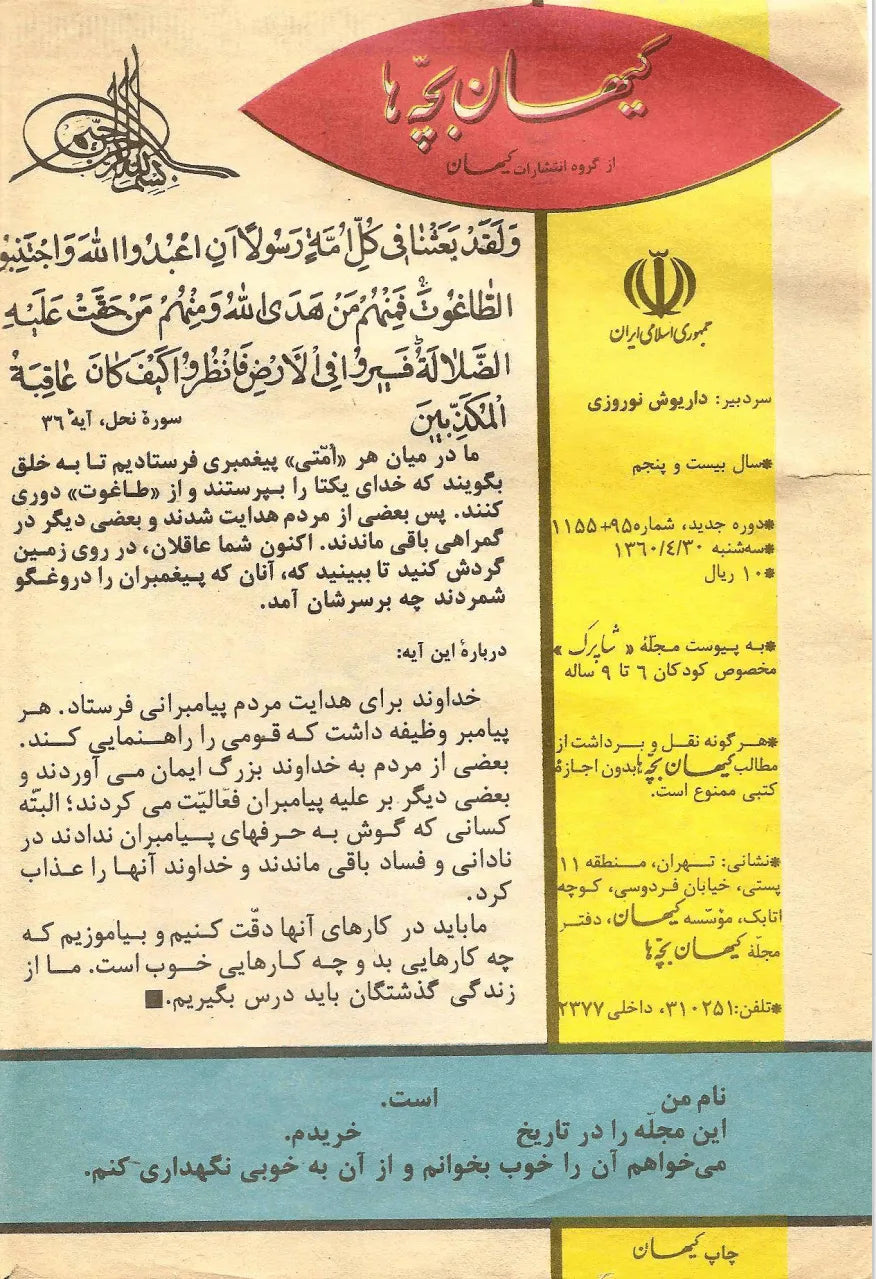 کیهان بچّه‌ها
از گروه انتشارات کیهان
وَلَقَدْ بَعَثْنٰا فی کُلِّ اُمَّةٍ رَسُولاً اَنِ اعْبُدُوا اللهَ وَاجْتَنِبُو
الطّٰاغُوتَ فَمِنْهُمْ مَنْ هَدَی اللهُ وَمِنْهُمْ مَنْ حَقَّتْ عَلَیْهِ
الضَّلاٰلَةُ فَسیرُوا فِی الْاَرْضِ فَانْظُرُوا کَیْفَ کٰانَ عٰاقِبَةُ
الْمُکَذِّبینَ
سورهٔ نحل، آیهٔ ۳۶
ما در میان هر «اُمّتی» پیغمبری فرستادیم تا به خلق
بگویند که خدای یکتا را بپرستند و از «طاغوت» دوری
کنند. پس بعضی از مردم هدایت شدند و بعضی دیگر در
گمراهی باقی ماندند. اکنون شما عاقلان، در روی زمین
گردش کنید تا ببینید که، آنان که پیغمبران را دروغگو
شمردند چه برسرشان آمد.
دربارهٔ این آیه:
خداوند برای هدایت مردم پیامبرانی فرستاد. هر
پیامبر وظیفه داشت که قومی را راهنمایی کند.
بعضی از مردم به خداوند بزرگ ایمان می آوردند و
بعضی دیگر بر علیه پیامبران فعّالیّت می کردند؛ البتّه
کسانی که گوش به حرفهای پیامبران ندادند در
نادانی و فساد باقی ماندند و خداوند آنها را عذاب
کرد.
ماباید در کارهای آنها دقّت کنیم و بیاموزیم که
چه کارهایی بد و چه کارهایی خوب است. ما از
زندگی گذشتگان باید درس بگیریم.■
جمهوری اسلامی ایران
سردبیر: داریوش نوروزی
*سال بیست و پنجم
*دوره جدید، شماره ۹۵+۱۱۵۵
*سه‌شنبه ۱۳۶۰/۴/۳۰
*۱۰ ریال
*به پیوست مجلّهٔ « شاپرک »
مخصوص کودکان ۶ تا ۹ ساله
*هرگونه نقل و برداشت از
مطالب کیهان بچّه‌ها بدون اجازهٔ
کتبی ممنوع است.
*نشانی: تهران، منطقه ۱۱
پستی، خیابان فردوسی، کوچه
اتابک، مؤسّسه کیهان، دفتر
مجلّه کیهان بچّه‌ها
*تلفن: ۳۱۰۲۵۱، داخلی ۲۳۷۷
نام من است.
این مجلّه را در تاریخ خریدم.
می‌خواهم آن را خوب بخوانم و از آن به خوبی نگهداری کنم.
چاپ کیهان